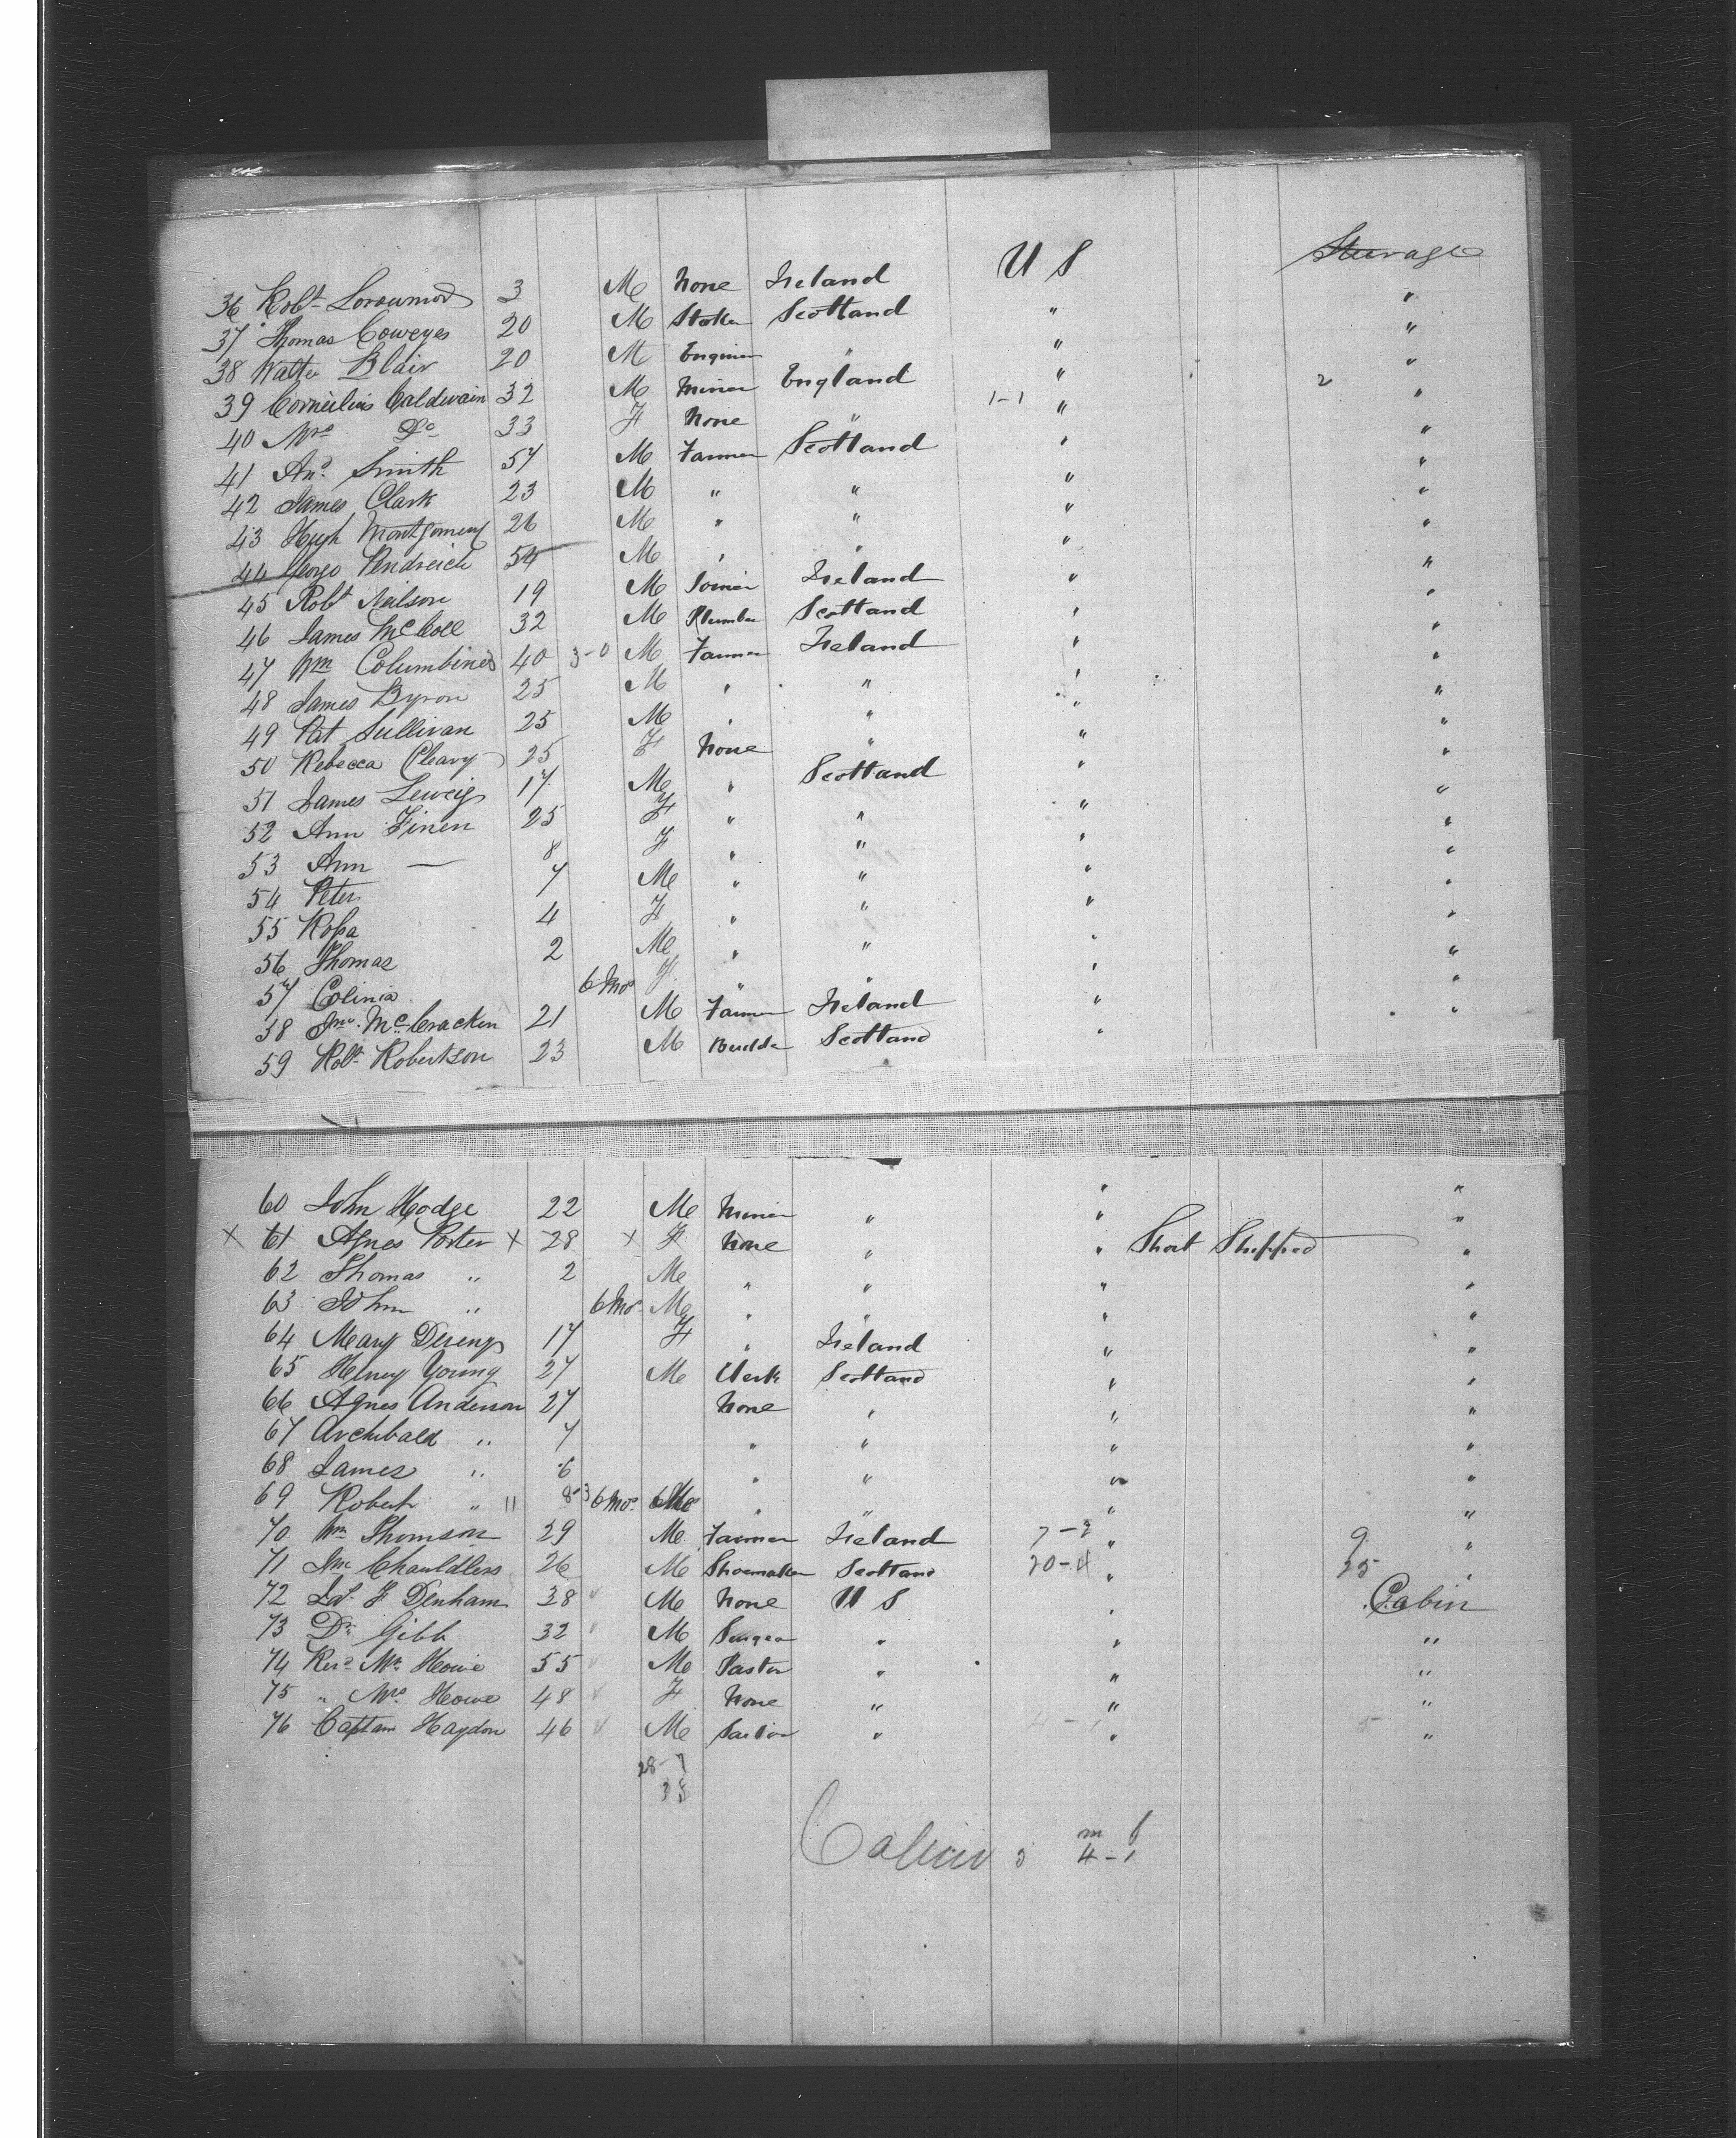 36 Robt 3 M None Ireland U S Steerage
37 Thomas Coweyes 20 M Stoker Scotland " "
38 Walter Blair 20 M Enginer " " "
39 Corneilius Caldwain 32 M Miner England " "
40 Mrs Do 33 F None " 1-1 " 2 "
41 And. Smith 57 M Farmer Scotland " "
42 James Clark 23 M " " " "
43 Hugh Montgomery 26 M " " " "
44 George Pendreich 54 M " " " "
45 Robt Neilson 19 M Joiner Ireland " "
46 James McColl 32 M Plumber Scotland " "
47 Wm Columbine 40 3-0 M Farmer Ireland " "
48 James Byron 25 M " " " "
49 Pat Sullivan 25 M " " " "
50 Rebecca Cleary 25 F None " " "
51 James 17 M " Scotland " "
52 Ann Finen 25 F " " " "
53 Ann — 8 F " " " "
54 Peter 7 M " " " "
55 Rosa 4 F " " " "
56 Thomas 2 M " " " "
57 Colinia 6 Mos F " " " "
38 Jno. McCracken 21 M Farmer Ireland " "
59 Robt. Robertson 23 M Builder Scotland " "
60 John Hodge 22 M Miner " " "
X 61 Agnes Porter X 28 X F None " " "
62 Thomas " 2 M " " " Short Shipped "
63 John " 6 Mos. M " " " "
64 Mary 17 F " Ireland " "
65 Henry Young 27 M Clerk Scotland " "
66 Agnes Anderson 27 None " " "
67 Archibald " 7 " " " "
68 James " 6 " " " "
69 Robert " 11 6 Mos. " " " "
70 Wm Thomson 29 M Farmer Ireland 7-2 " 9 "
71 Jno 26 M Shoemaker Scotland 20-4 " 25 "
72 F Denham 38 M None U S " Cabin
73 Dr. Gibb 32 M Surgeon " " "
74 Revd. Mr. Howie 55 M Pastor " " "
75 " Mrs. Howe 48 F None " " "
76 Captain Haydon 46 M Sailor " " 5 "
28-7
35
Cabin 5 m 4 - f 1